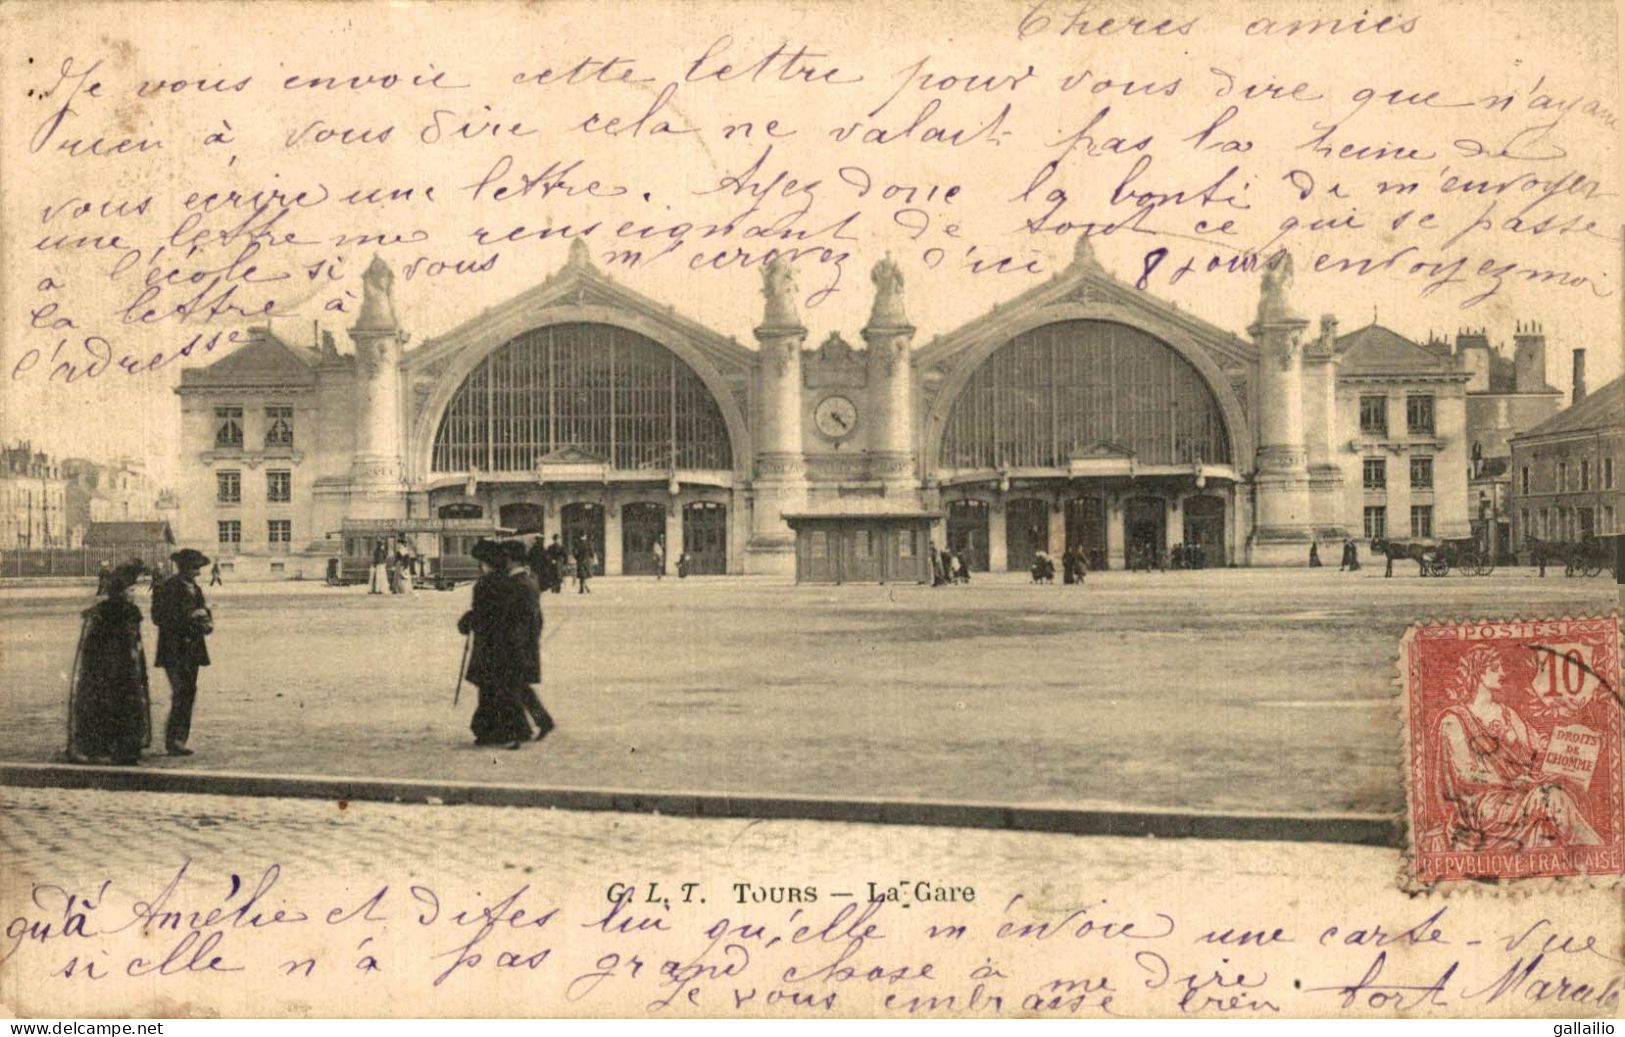 Cheres amies
Je vous envoie cette lettre pour vous dire que n'ayant
rien à vous dire cela ne valait pas la peine de
vous ecrire une lettre. Ayez donc la bonté de m'envoyer
une lettre me renseignant de tout ce qui se passe
a l'école si vous m'ecrivez d'ici 8 jours envoyez moi
la lettre à
l'adresse
POSTES
10
DROITS
DE
L'HOMME
REPVBLIQVE FRANÇAISE
G. L. T. TOURS — La Gare
qu'à Amélie et dites lui qu'elle m'envoie une carte-vue
si elle n'a pas grand chose à me dire.
Je vous embrasse bien fort Marcelle
www.delcampe.net
gallailio